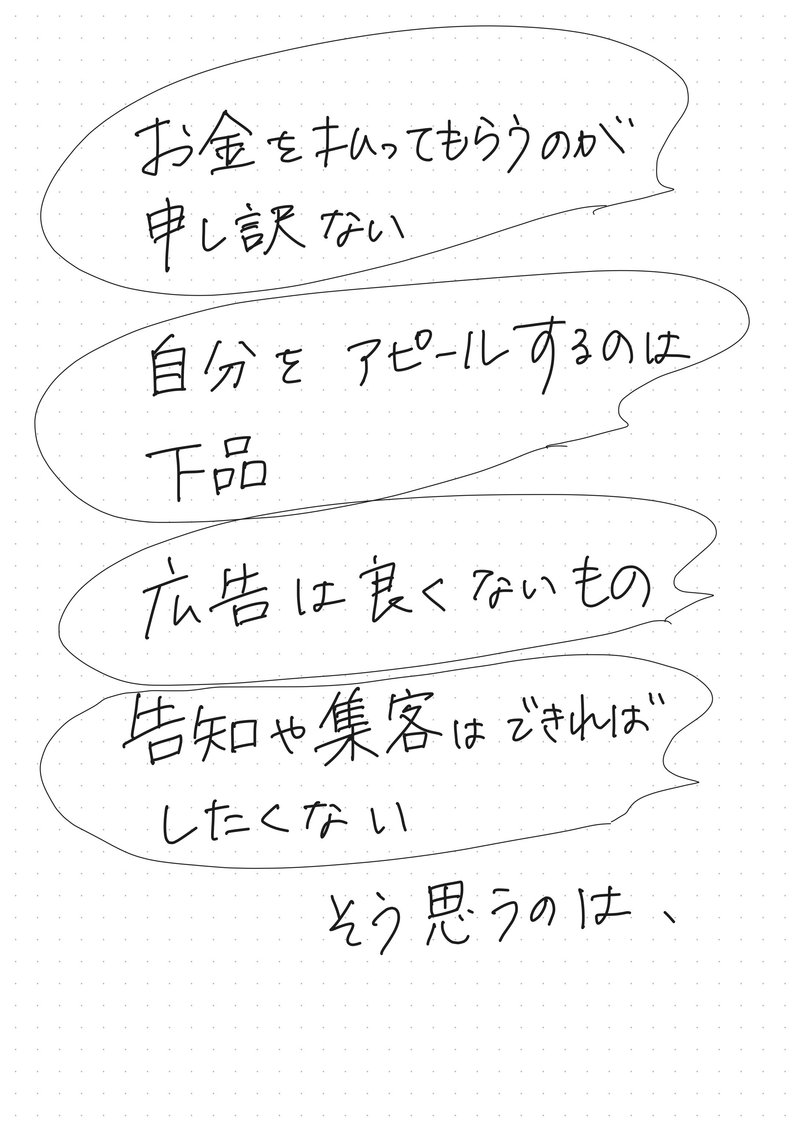 お金を払ってもらうのが
申し訳ない
自分をアピールするのは
下品
広告は良くないもの
告知や集客はできれば
したくない
そう思うのは、